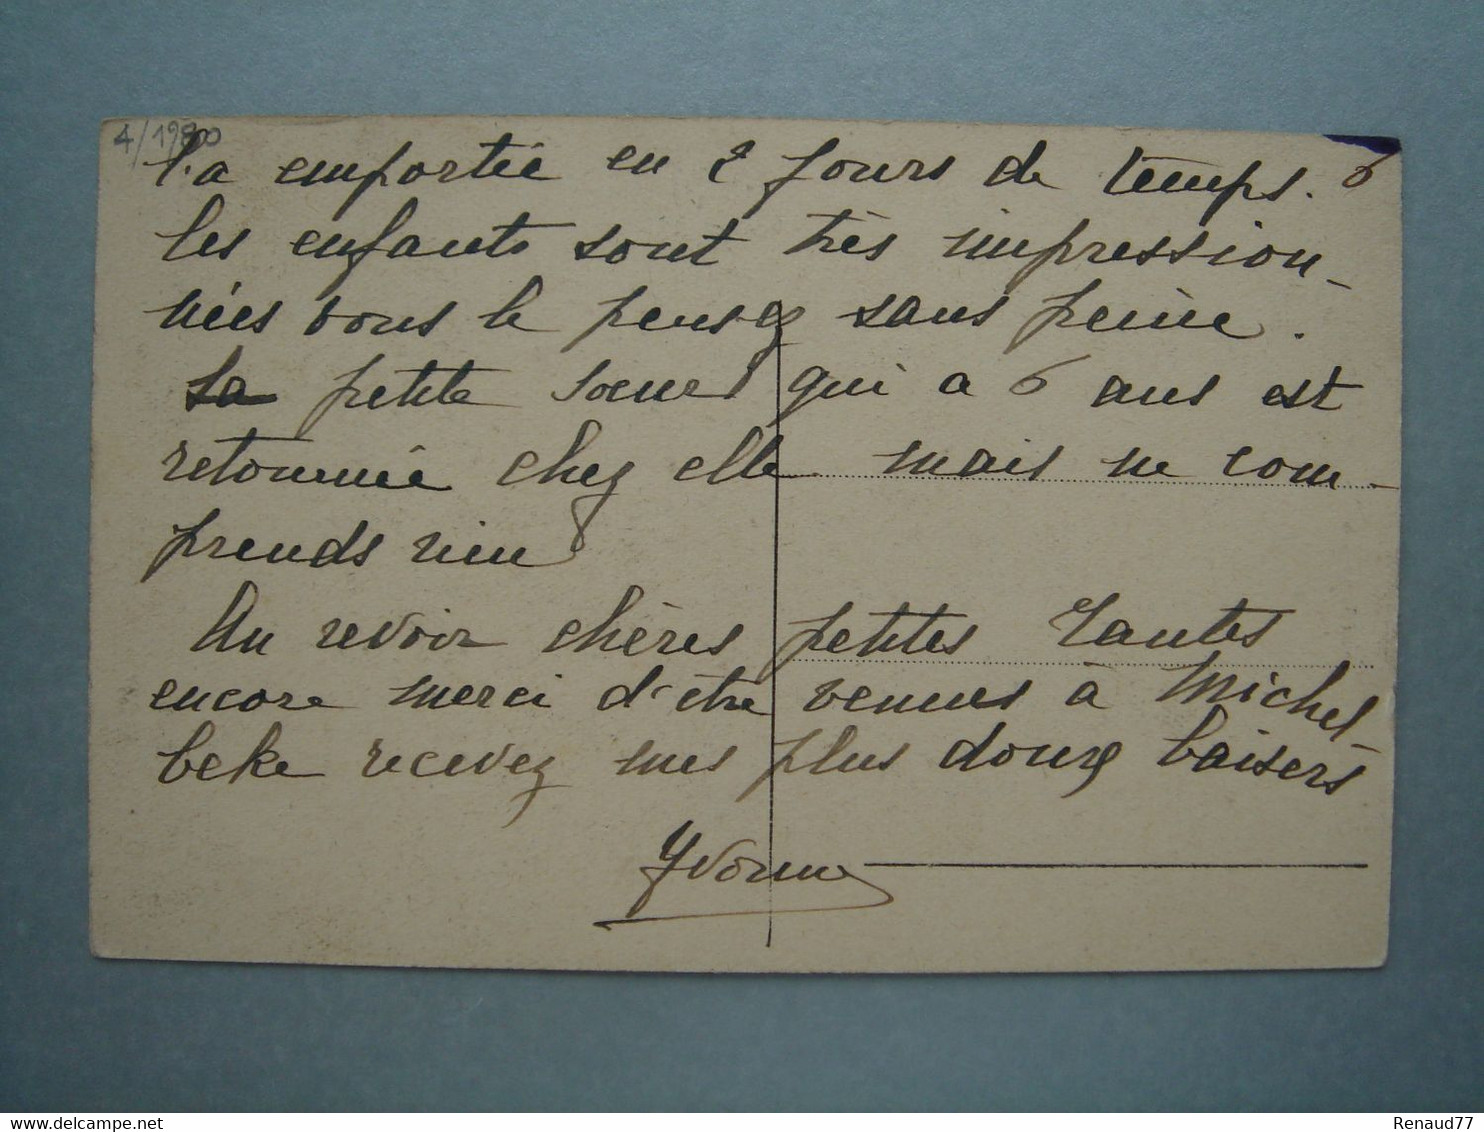 4/1900
l'a emportée en 2 jours de temps. 6
les enfants sont très impression-
nées vous le pensez sans peine.
Sa petite soeur qui a 6 ans est
retournée chez elle mais ne com-
prends rien
Au revoir chères petites Tantes
encore merci d'être venues à Michel-
beke recevez mes plus doux baisers
Yvonne
delcampe.net
Renaud77